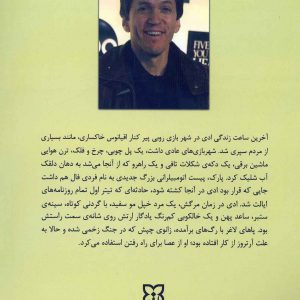 FIVE
YOU
آخرین ساعت زندگی ادی در شهر بازی روبی پیر کنار اقیانوس خاکستری، مانند بسیاری
از مردم سپری شد. شهربازی‌های عادی داشت، یک پل چوبی، چرخ و فلک، ترن هوایی
ماشین برقی، یک دکه‌ی شکلات تافی و یک راهرو که از آنجا می‌شد به دهان دلقک
آب شلیک کرد. پارک، پیست اتومبیلرانی بزرگ جدیدی به نام فردی فال هم داشت
جایی که قرار بود ادی در آنجا کشته شود، حادثه‌ای که تیتر اول تمام روزنامه‌های
ایالت شد. ادی در زمان مرگش، یک مرد خپل مو سفید، با گردنی کوتاه، سینه‌ی
ستبر، ساعد پهن و یک خالکوبی کم‌رنگ یادگار ارتش روی شانه‌ی سمت راستش
بود. پاهای لاغر با رگ‌های برآمده، زانوی چپش که در جنگ زخمی شده و حالا به
علت آرتروز از کار افتاده بود؛ او از عصا برای راه رفتن استفاده می‌کرد.